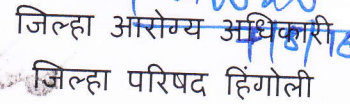 जिल्हा आरोग्य अधिकारी
जिल्हा परिषद हिंगोली